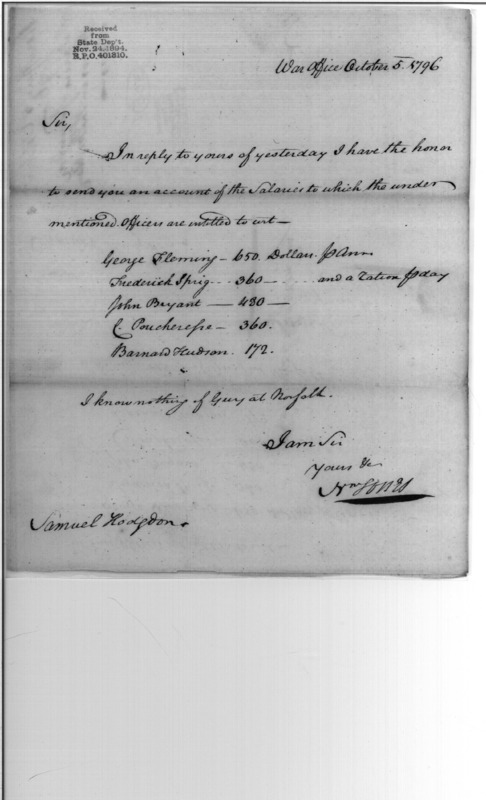 Received
from
State Dep't.
Nov. 24, 1894.
R.P.O. 401310.
War Office October 5. 1796
Sir,
In reply to yours of yesterday I have the honor
to send you an account of the Salaries to which the under
mentioned Officers are entitled to wit—
George Fleming — 650. Dollars. ⅌ Ann
Frederick Sprig .. 360 — .... and a Ration ⅌ day
John Bryant — 480 —
C. Poucheresse — 360.
Barnard Hudson. 172.
I know nothing of Guy at Norfolk.
I am Sir
Yours &c
Wm Jones
Samuel Hodgdon.